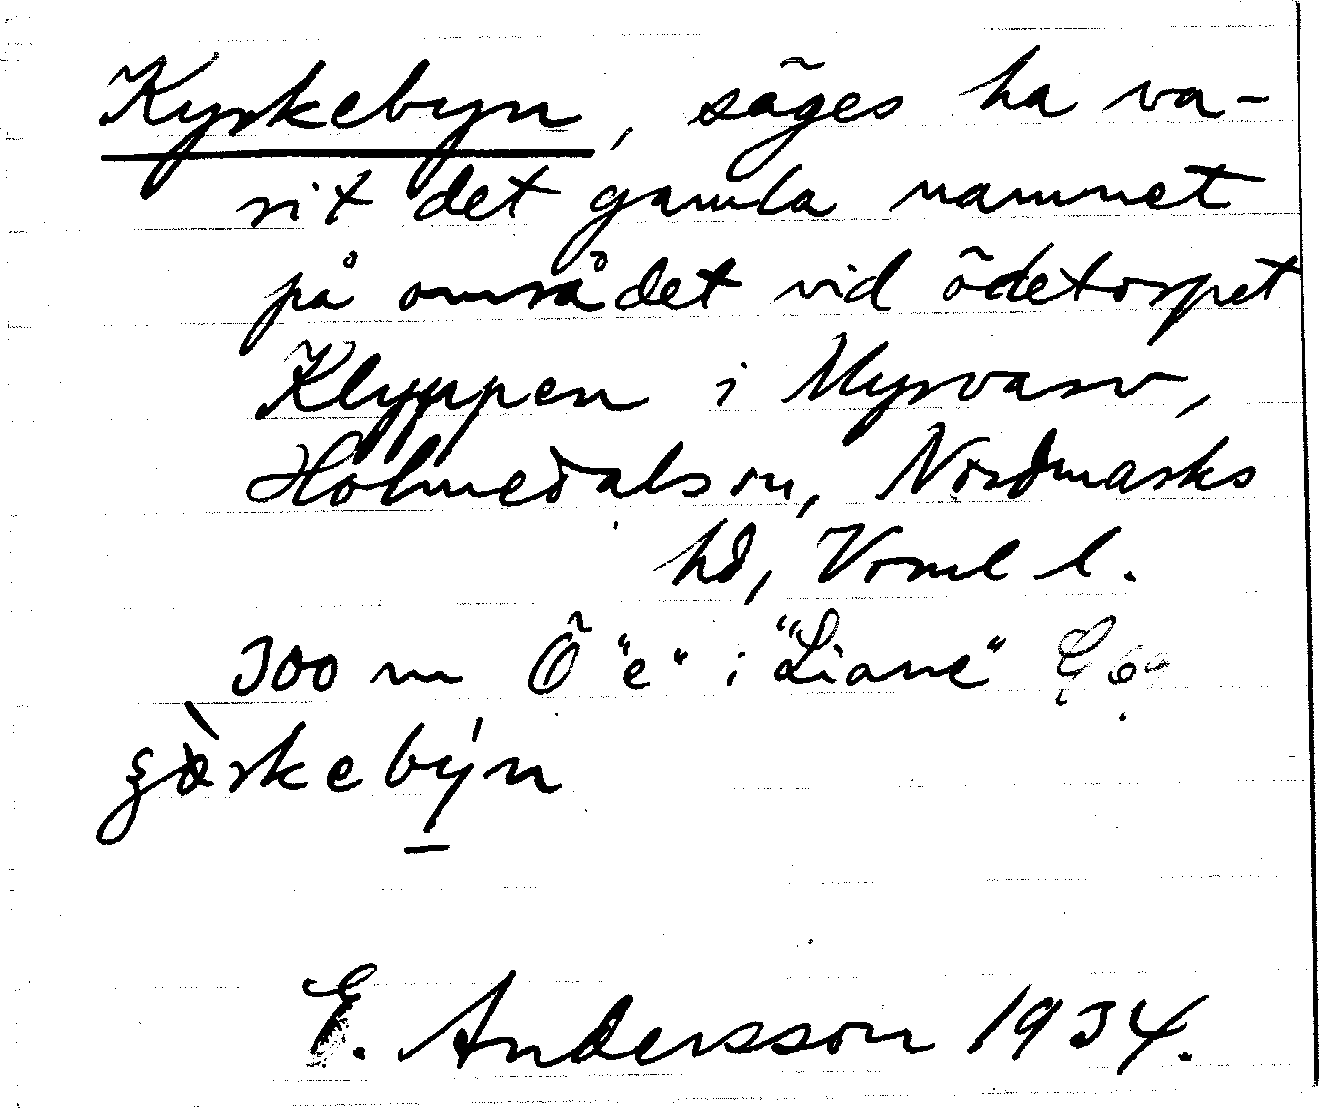 Kyrkebyn, säges ha va-
rit det gamla namnet
på området vid ödetorpet
Klyppen i Myrvarv,
Holmedal sn, Nordmarks
hd, Vrml l.
300 m Ö "e" i "Liane"
E. Andersson 1934.